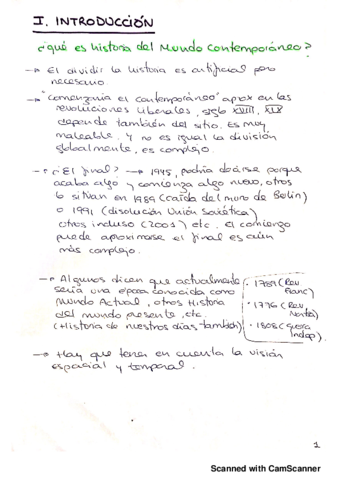 I. INTRODUCCIÓN
¿qué es historia del Mundo Contemporáneo?
→ El dividir la historia es artificial pero
necesario
→ "comenzaría el contemporáneo" aprox en las
revoluciones liberales, siglo XVIII, XIX
depende también del sitio. Es muy
maleable. Y no es igual la división
globalmente, es complejo.
→ ¿El final? → 1945, podría decirse porque
acaba algo y comienza algo nuevo, otros
lo sitúan en 1989 (caída del muro de Berlín)
o 1991 (disolución Unión Soviética)
otros incluso (2001) etc. El comienzo
puede aproximarse el final es aún
más complejo.
→ Algunos dicen que actualmente
sería una época conocida como
Mundo Actual, otros Historia
del mundo presente, etc.
(Historia de nuestros días también)
· 1789 (Rev
Franc)
· 1776 (Rev
Nortea)
· 1808 (Guerra
Indep).
→ Hay que tener en cuenta la visión
espacial y temporal.
1
Scanned with CamScanner